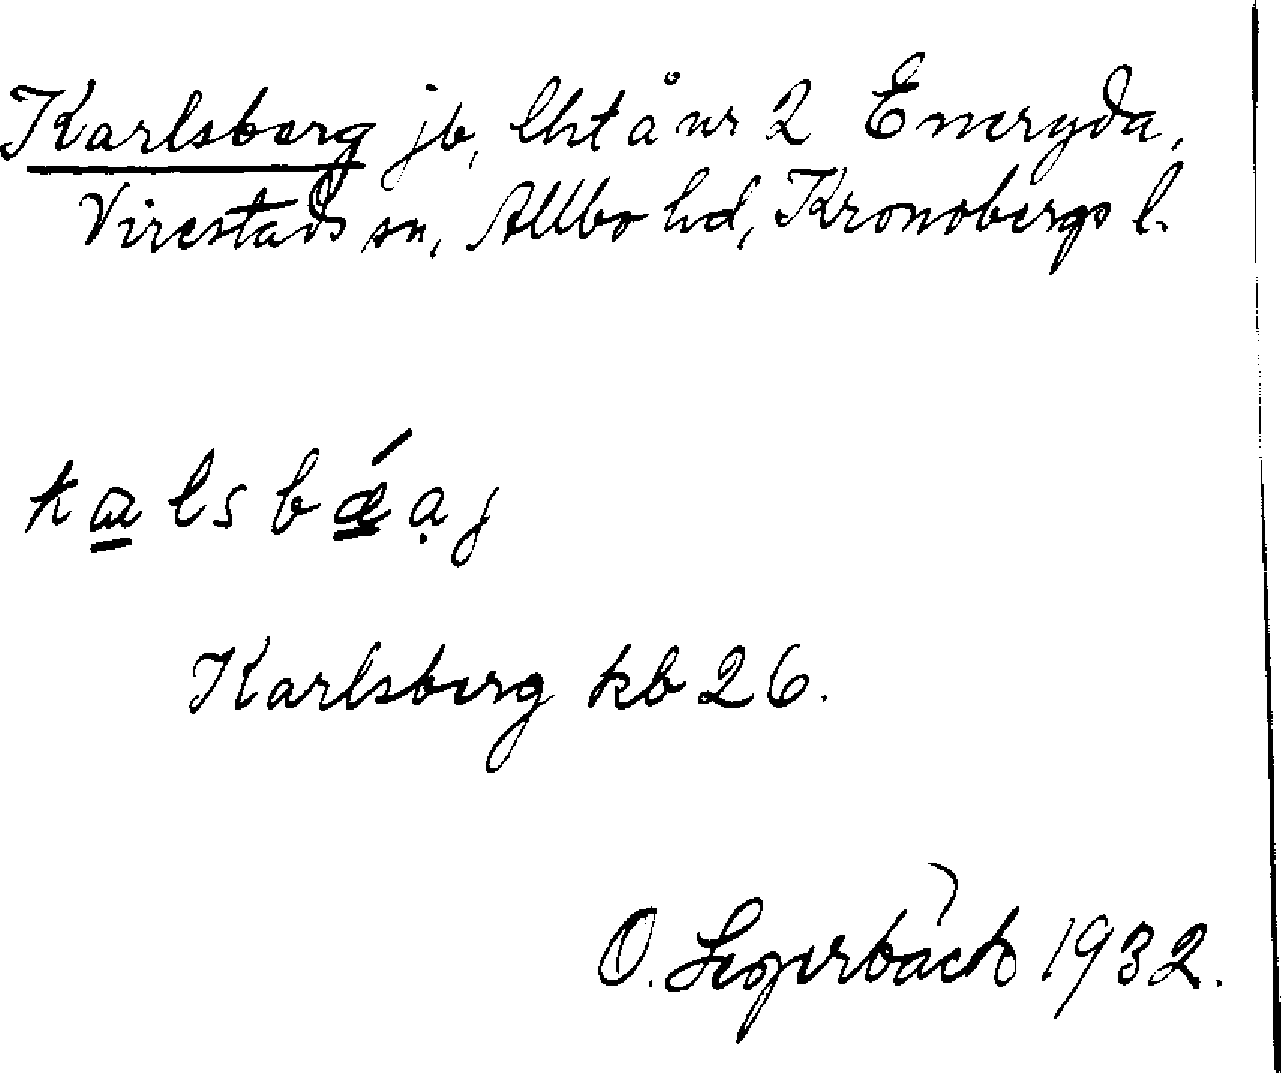 Karlsberg jb, lht å nr 2 Eneryda,
Virestads sn, Allbo hd, Kronobergs l.
kalsbǽạj
Karlsberg kb 26.
O. Segerbäck 1932.